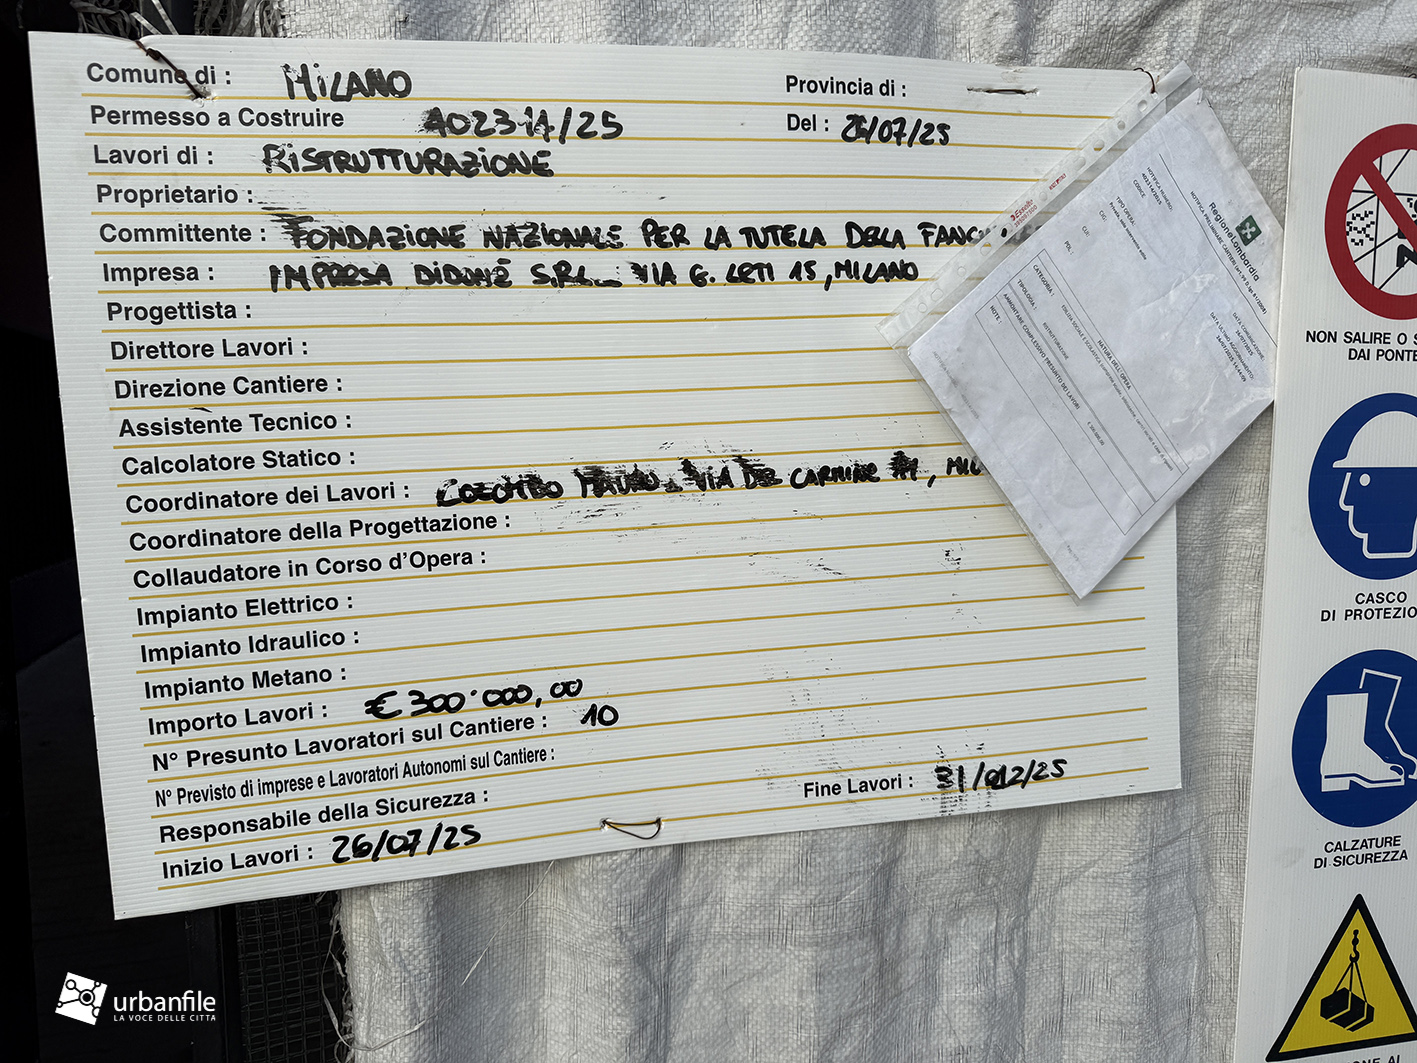 Comune di : MILANO
Provincia di :
Permesso a Costruire 402314/25
Del : 26/07/25
Lavori di : RISTRUTTURAZIONE
Proprietario :
Committente : FONDAZIONE NAZIONALE PER LA TUTELA DELLA FANC
Impresa : IMPRESA DIDONÈ S.R.L. VIA G. LETI 15, MILANO
Progettista :
Direttore Lavori :
Direzione Cantiere :
Assistente Tecnico :
Calcolatore Statico :
Coordinatore dei Lavori : COLOMBO MAURO VIA DEL CARMINE 11, MIL
Coordinatore della Progettazione :
Collaudatore in Corso d'Opera :
Impianto Elettrico :
Impianto Idraulico :
Impianto Metano :
Importo Lavori : € 300'000,00
N° Presunto Lavoratori sul Cantiere : 10
N° Previsto di imprese e Lavoratori Autonomi sul Cantiere :
Responsabile della Sicurezza :
Inizio Lavori : 26/07/25
Fine Lavori : 31/12/25
RegioneLombardia
NOTIFICA PRELIMINARE CANTIERI
NOTIFICA NUMERO:
402314/2025
CODICE
DATA COMUNICAZIONE:
26/07/2025
DATA ULTIMO AGGIORNAMENTO:
TIPO OPERA:
CUP:
CIG:
NATURA DELL'OPERA
CATEGORIA :
TIPOLOGIA : RISTRUTTURAZIONE
AMMONTARE COMPLESSIVO PRESUNTO DEI LAVORI
€ 300.000,00
NOTE :
NON SALIRE O S
DAI PONTE
CASCO
DI PROTEZIO
CALZATURE
DI SICUREZZA
urbanfile
LA VOCE DELLE CITTÀ